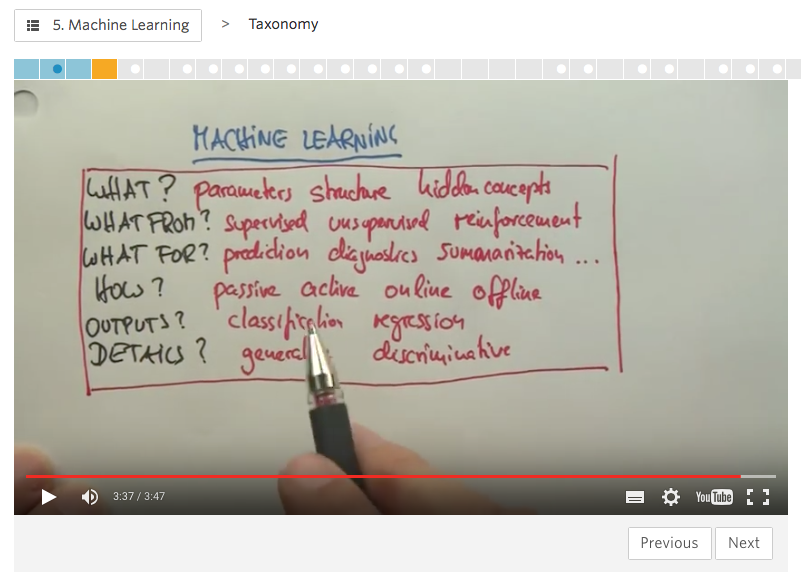 5. Machine Learning > Taxonomy
MACHINE LEARNING
WHAT? parameters structure hidden concepts
WHAT FROM? supervised unsupervised reinforcement
WHAT FOR? prediction diagnostics summarization ...
HOW? passive active online offline
OUTPUTS? classification regression
DETAILS? general discriminative
3:37 / 3:47
YouTube
Previous Next